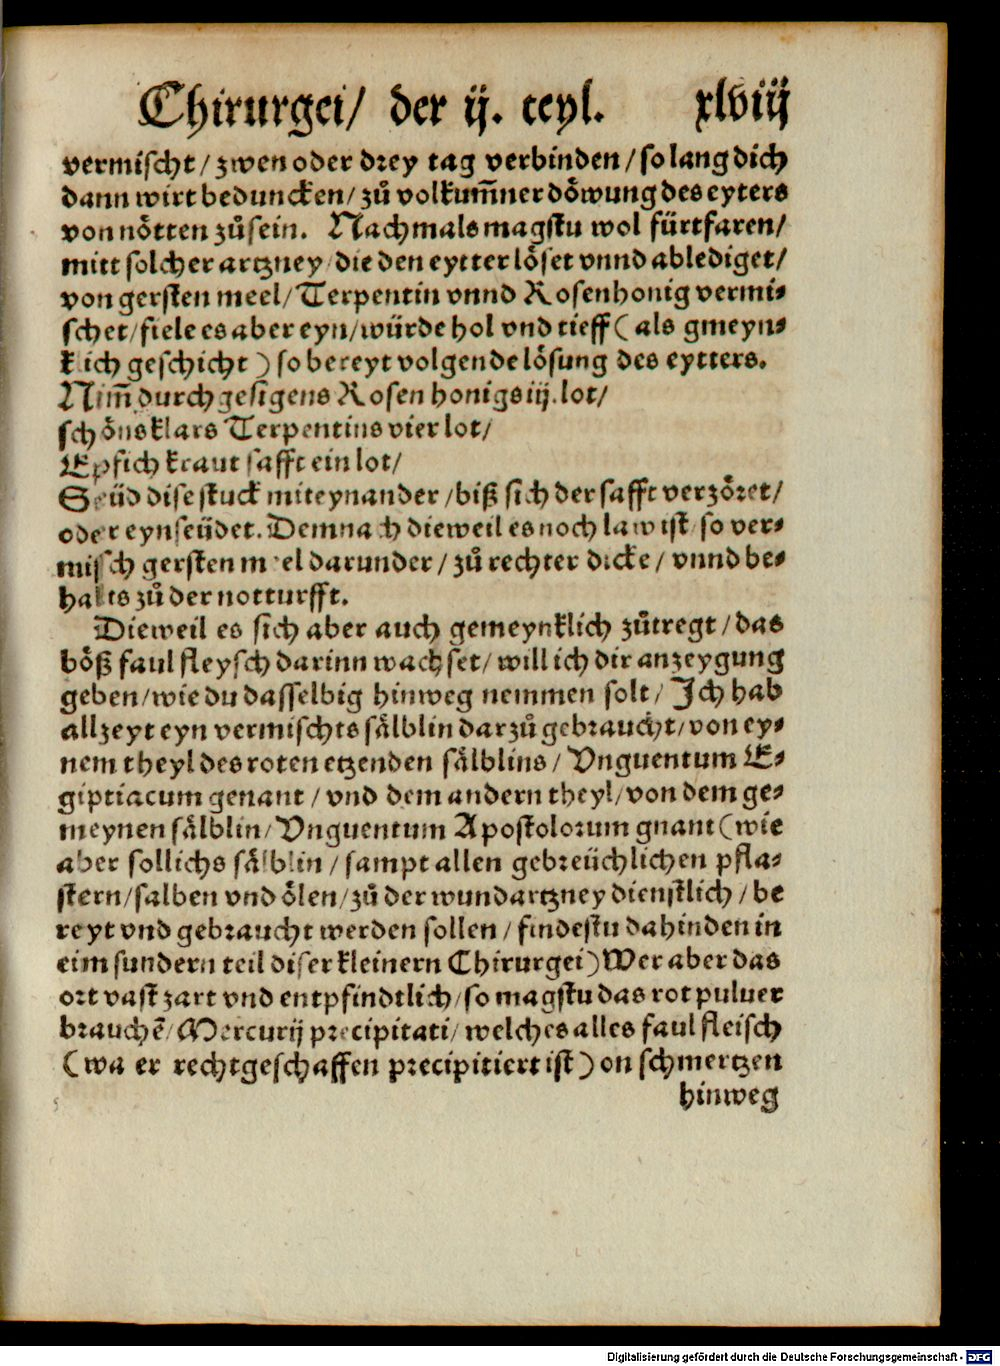 Chirurgei/ der ij. teyl. xlviij
vermischt/zwen oder drey tag verbinden/so lang dich
dann wirt beduncken/zů volkum̃ner döwung des eyters
von nötten zů sein. Nachmals magstu wol fürtfaren/
mitt solcher artzney die den eytter löset vnnd ablediget/
von gersten meel/Terpentin vnnd Rosenhonig vermi-
schet/fiele es aber eyn/würde hol vnd tieff (als gmeyn-
klich geschicht) so bereyt volgende lösung des eytters.
Nim̃ durchgesigens Rosen honigs iij.lot/
schöns klars Terpentins vier lot/
Epfich kraut safft ein lot/
Seüd dise stuck miteynander/biß sich der safft verzöret/
oder eynseüdet. Demnach dieweil es noch law ist/so ver-
misch gersten meel darunder/zů rechter dicke/vnnd be-
halts zů der notturfft.
Dieweil es sich aber auch gemeynklich zůtregt/das
böß faul fleysch darinn wachset/will ich dir anzeygung
geben/wie du dasselbig hinweg nemmen solt/Ich hab
allzeyt eyn vermischts sälblin darzů gebraucht/von ey-
nem theyl des roten etzenden sälblins/Vnguentum E-
giptiacum genant/vnd dem andern theyl/von dem ge-
meynen sälblin/Vnguentum Apostolorum gnant (wie
aber sollichs sälblin/sampt allen gebreüchlichen pfla-
stern/salben vnd ölen/zů der wundartzney dienstlich/be
reyt vnd gebraucht werden sollen/findestu dahinden in
eim sundern teil diser kleinern Chirurgei) Wer aber das
ort vast zart vnd entpfindtlich/so magstu das rot puluer
brauchē/Mercurij precipitati/welches alles faul fleisch
(wa er rechtgeschaffen precipitiert ist) on schmertzen
hinweg
Digitalisierung gefördert durch die Deutsche Forschungsgemeinschaft - DFG